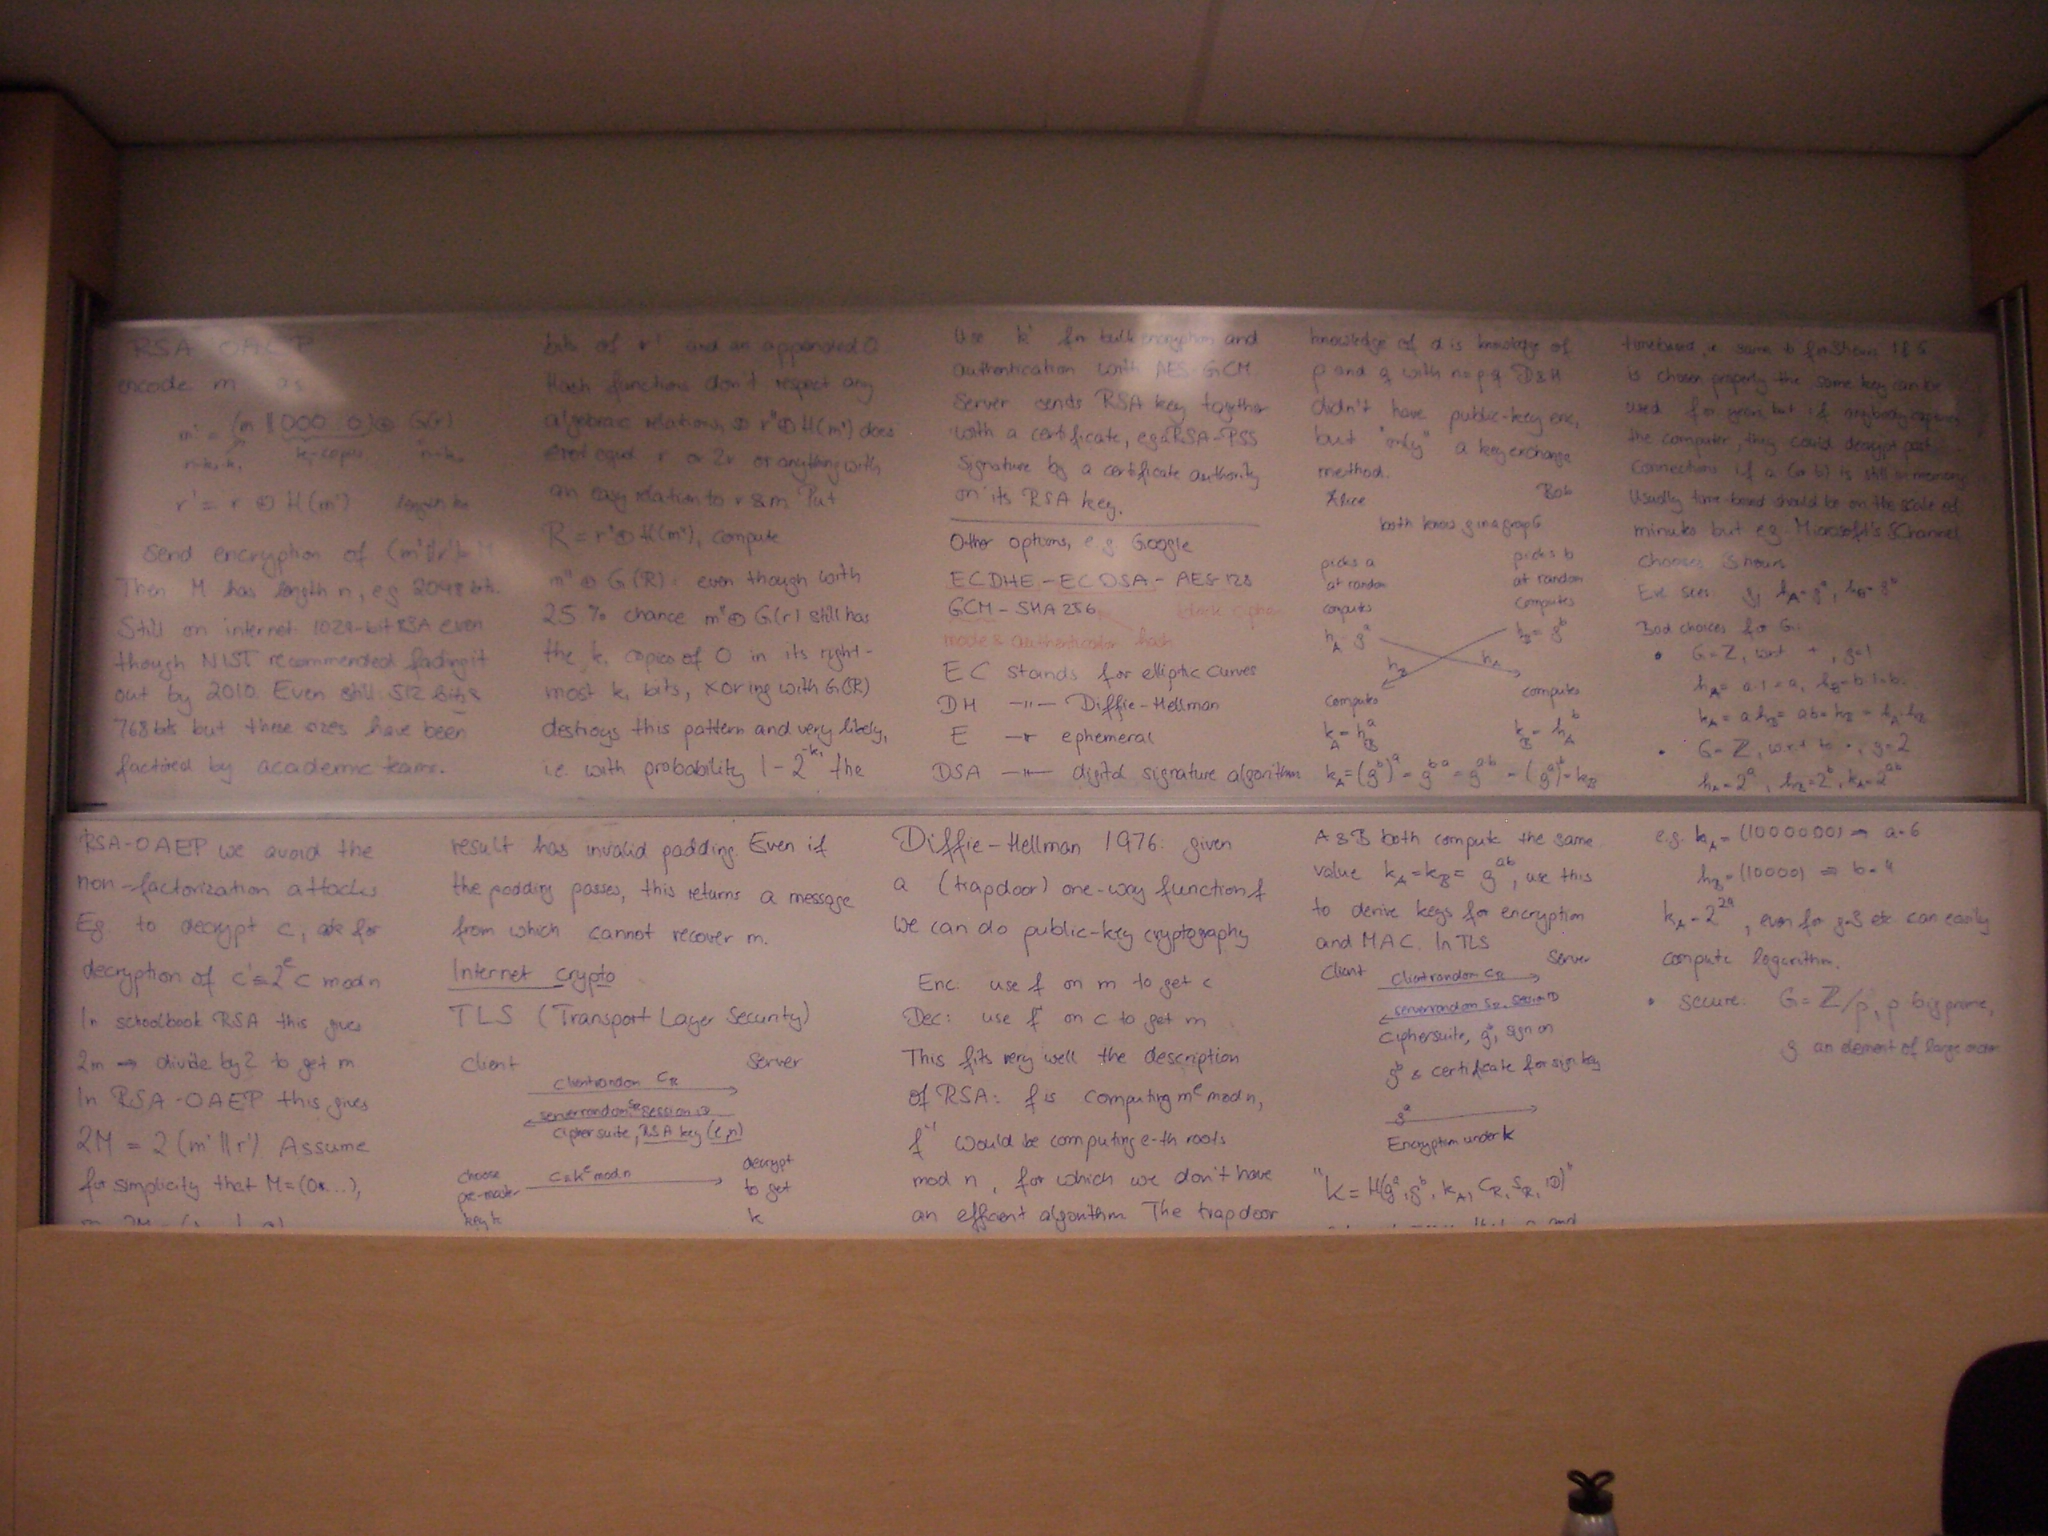 RSA OAEP
encode m as
m' = (m || 000..0) ⊕ G(r)
r' = r ⊕ H(m')
Send encryption of (m'||r') = M
Then M has length n, eg 2048 bits.
Still on internet 1024-bit RSA even
though NIST recommended fading it
out by 2010. Even still 512 bits &
768 bits but these sizes have been
factored by academic teams.
RSA-OAEP we avoid the
non-factorization attacks
Eg. to decrypt c, ask for
decryption of c'=2^e c mod n
In schoolbook RSA this gives
2m → divide by 2 to get m
In RSA-OAEP this gives
2M = 2 (m' || r') Assume
for simplicity that M=(0...),
bits of r' and an appended 0
Hash functions don't respect any
algebraic relations, r''⊕H(m'') does
not equal r or 2r or anything with
an easy relation to r & m. Put
R = r''⊕H(m''), compute
m'' ⊕ G(R): even though with
25 % chance m''⊕G(r) still has
the k₁ copies of 0 in its right-
most k₁ bits, xoring with G(R)
destroys this pattern and very likely,
i.e. with probability 1-2^-k₁ the
result has invalid padding. Even if
the padding passes, this returns a message
from which cannot recover m.
Internet crypto
TLS (Transport Layer Security)
Client Server
clientrandom C_R
serverrandom S_R session ID
ciphersuite, RSA key (e,n)
choose decrypt
pre-master c=k^e mod n to get
key k k
Use k for bulk encryption and
authentication with AES-GCM
Server sends RSA key together
with a certificate, eg a RSA-PSS
signature by a certificate authority
on its RSA key.
Other options, e.g Google
ECDHE-ECDSA-AES 128
GCM-SHA256 block cipher
mode & authenticator hash
EC stands for elliptic curves
DH -"- Diffie-Hellman
E -"- ephemeral
DSA -"- digital signature algorithm
Diffie-Hellman 1976: given
a (trapdoor) one-way function f
we can do public-key cryptography
Enc: use f on m to get c
Dec: use f⁻¹ on c to get m
This fits very well the description
of RSA: f is computing m^e mod n,
f⁻¹ would be computing e-th roots
mod n, for which we don't have
an efficent algorithm. The trapdoor
knowledge of d is knowledge of
p and q with n=pq D&H
didn't have public-key enc,
but "only" a key exchange
method.
Alice Bob
both know g in a group G
picks a picks b
at random at random
computes computes
h_A=g^a h_B=g^b
h_B h_A
computes computes
k_A=h_B^a k_B=h_A^b
k_A=(g^b)^a=g^ba=g^ab=(g^a)^b=k_B
A & B both compute the same
value k_A=k_B=g^ab, use this
to derive keys for encryption
and MAC. In TLS
Client Server
clientrandom C_R
serverrandom S_R, session ID
ciphersuite, g^b, sign on
g^b & certificate for sign key
g^a
Encryption under k
"k = H(g^a, g^b, k_A, C_R, S_R, ID)"
is chosen properly the same key can be
used for given, but if anybody
the computer, they could decrypt past
connections if a (or b) is still in memory
Usually time-bound should be on the scale of
minutes but eg. Microsoft's SChannel
chooses hours
Eve sees g, h_A=g^a, h_B=g^b
Bad choices for G:
• G=Z, wrt +, g=1
h_A=a·1=a, h_B=b·1=b
k_A=a·h_B=ab=h_A·h_B
• G=Z, wrt to ·, g=2
h_A=2^a, h_B=2^b, k_A=2^ab
e.g. h_A=(1000000) ⇒ a=6
h_B=(10000) ⇒ b=4
k_A=2^24, even for g=3 etc can easily
compute logarithm.
• secure: G=Z/p, p big prime,
g an element of large order